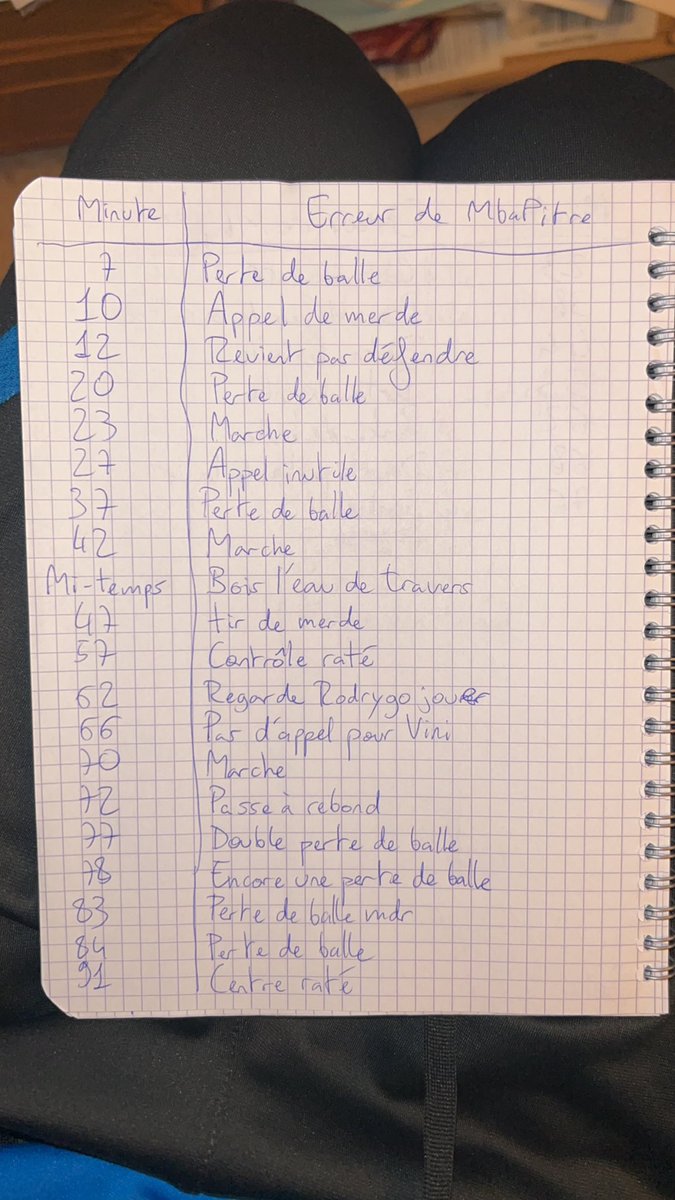 Minute Erreur de MbaPitre
7 Perte de balle
10 Appel de merde
12 Revient pas défendre
20 Perte de balle
23 Marche
27 Appel inutile
37 Perte de balle
42 Marche
Mi-temps Bois l'eau de travers
47 tir de merde
57 Contrôle raté
62 Regarde Rodrygo jouer
66 Pas d'appel pour Vini
70 Marche
72 Passe à rebond
77 Double perte de balle
78 Encore une perte de balle
83 Perte de balle mdr
84 Perte de balle
91 Centre raté